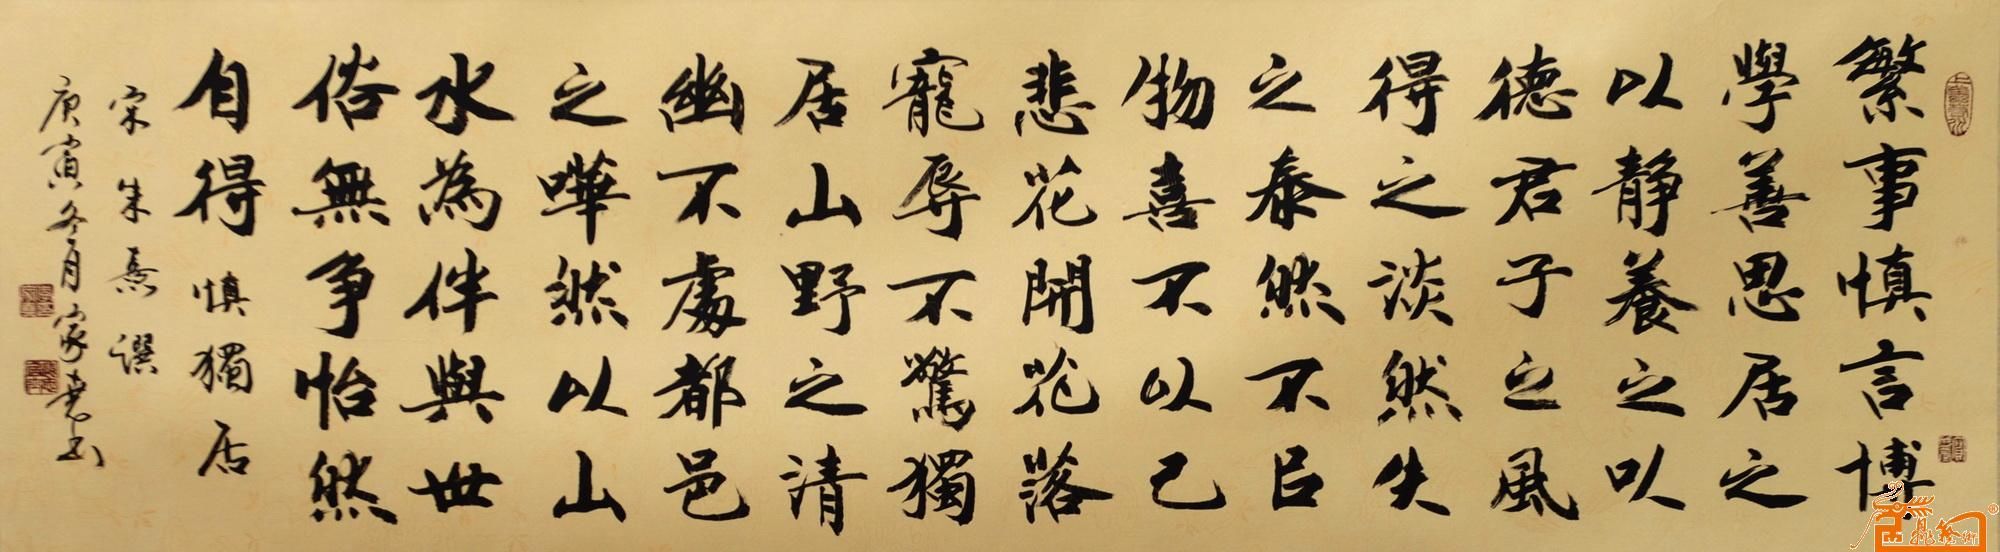 繁事慎言博
學善思居之
以静養之以
德君子之風
得之淡然失
之泰然不以
物喜不以己
悲花開花落
寵辱不驚獨
居山野之清
幽不處都邑
之嘩然以山
水為伴與世
俗無争怡然
自得 慎獨居
宋朱熹譔
庚寅冬月家堯书